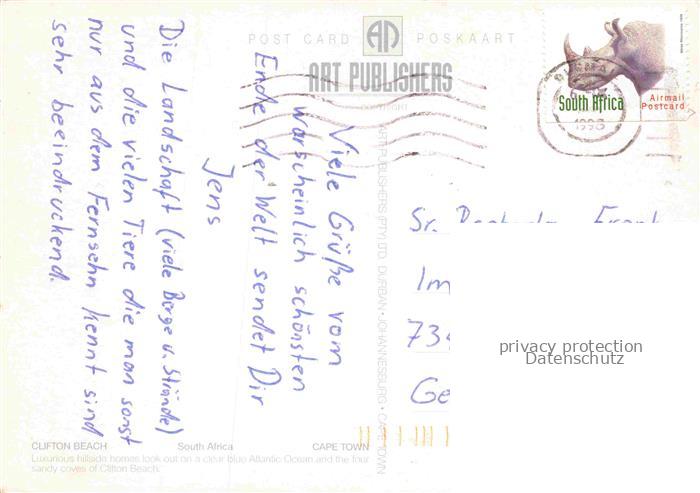 POST CARD POSKAART
ART PUBLISHERS
COPYRIGHT
ART PUBLISHERS (PTY) LTD DURBAN • JOHANNESBURG • CAPE TOWN
South Africa
Airmail
Postcard
Viele Grüße vom
warscheinlich schönsten
Ende der Welt sendet Dir
Jens
Die Landschaft (viele Berge u. Strände)
und die vielen Tiere die man sonst
nur aus dem Fernsehn kennt sind
sehr beeindruckend.
Sr.
Im
73
Ge
privacy protection
Datenschutz
CLIFTON BEACH South Africa CAPE TOWN
Luxurious hillside homes look out on a clear blue Atlantic Ocean and the four
sandy coves of Clifton Beach.